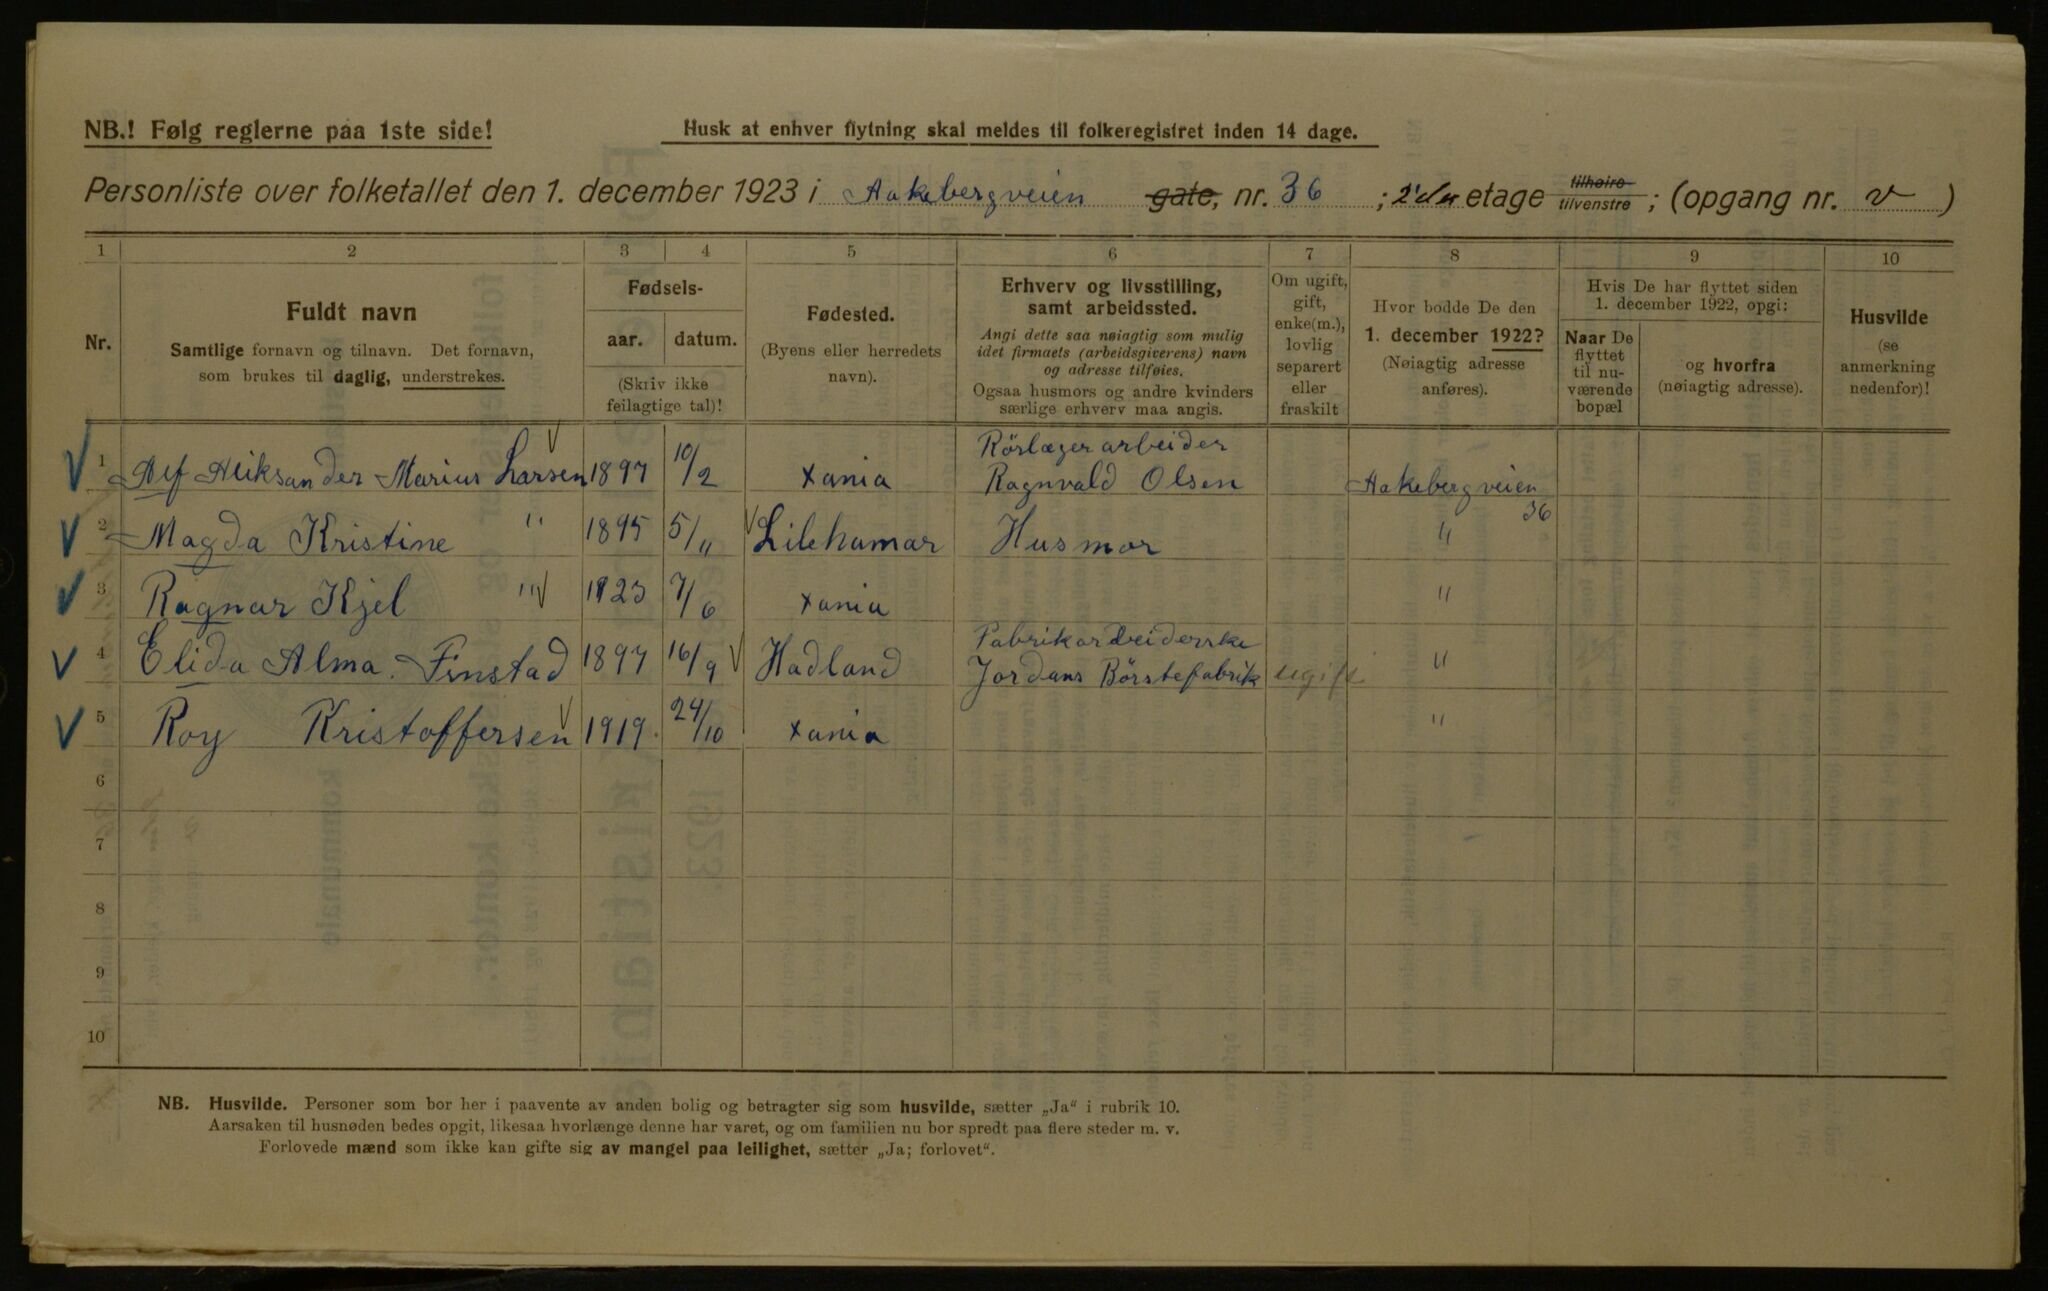 NB.! Følg reglerne paa 1ste side!
Husk at enhver flytning skal meldes til folkeregistret inden 14 dage.
Personliste over folketallet den 1. december 1923 i Aakebergveien gate, nr. 36 ; 2'den etage tilhøire tilvenstre ; (opgang nr. v )
1 2 3 4 5 6 7 8 9 10
Nr.
Fuldt navn
Samtlige fornavn og tilnavn. Det fornavn,
som brukes til daglig, understrekes.
Fødsels-
aar. datum.
(Skriv ikke
feilagtige tal)!
Fødested.
(Byens eller herredets
navn).
Erhverv og livsstilling,
samt arbeidssted.
Angi dette saa nøiagtig som mulig
idet firmaets (arbeidsgiverens) navn
og adresse tilføies.
Ogsaa husmors og andre kvinders
særlige erhverv maa angis.
Om ugift,
gift,
enke(m.),
lovlig
separert
eller
fraskilt
Hvor bodde De den
1. december 1922?
(Nøiagtig adresse
anføres).
Hvis De har flyttet siden
1. december 1922, opgi:
Naar De
flyttet
til nu-
værende
bopæl
og hvorfra
(nøiagtig adresse).
Husvilde
(se
anmerkning
nedenfor)!
1 Alf Aleksander Marius Larsen 1897 10/2 Xania Rörlægerarbeider Ragnvald Olsen Aakebergveien 36
2 Magda Kristine " 1895 5/11 Lilehamar Husmor "
3 Ragnar Kjel " 1923 7/6 Xania "
4 Elida Alma. Finstad 1897 16/9 Hadland Fabrikarbeiderske Jordans Börstefabrik ugift "
5 Roy Kristoffersen 1919. 24/10 Xania "
6
7
8
9
10
NB. Husvilde. Personer som bor her i paavente av anden bolig og betragter sig som husvilde, sætter „Ja" i rubrik 10.
Aarsaken til husnøden bedes opgit, likesaa hvorlænge denne har varet, og om familien nu bor spredt paa flere steder m. v.
Forlovede mænd som ikke kan gifte sig av mangel paa leilighet, sætter „Ja; forlovet".